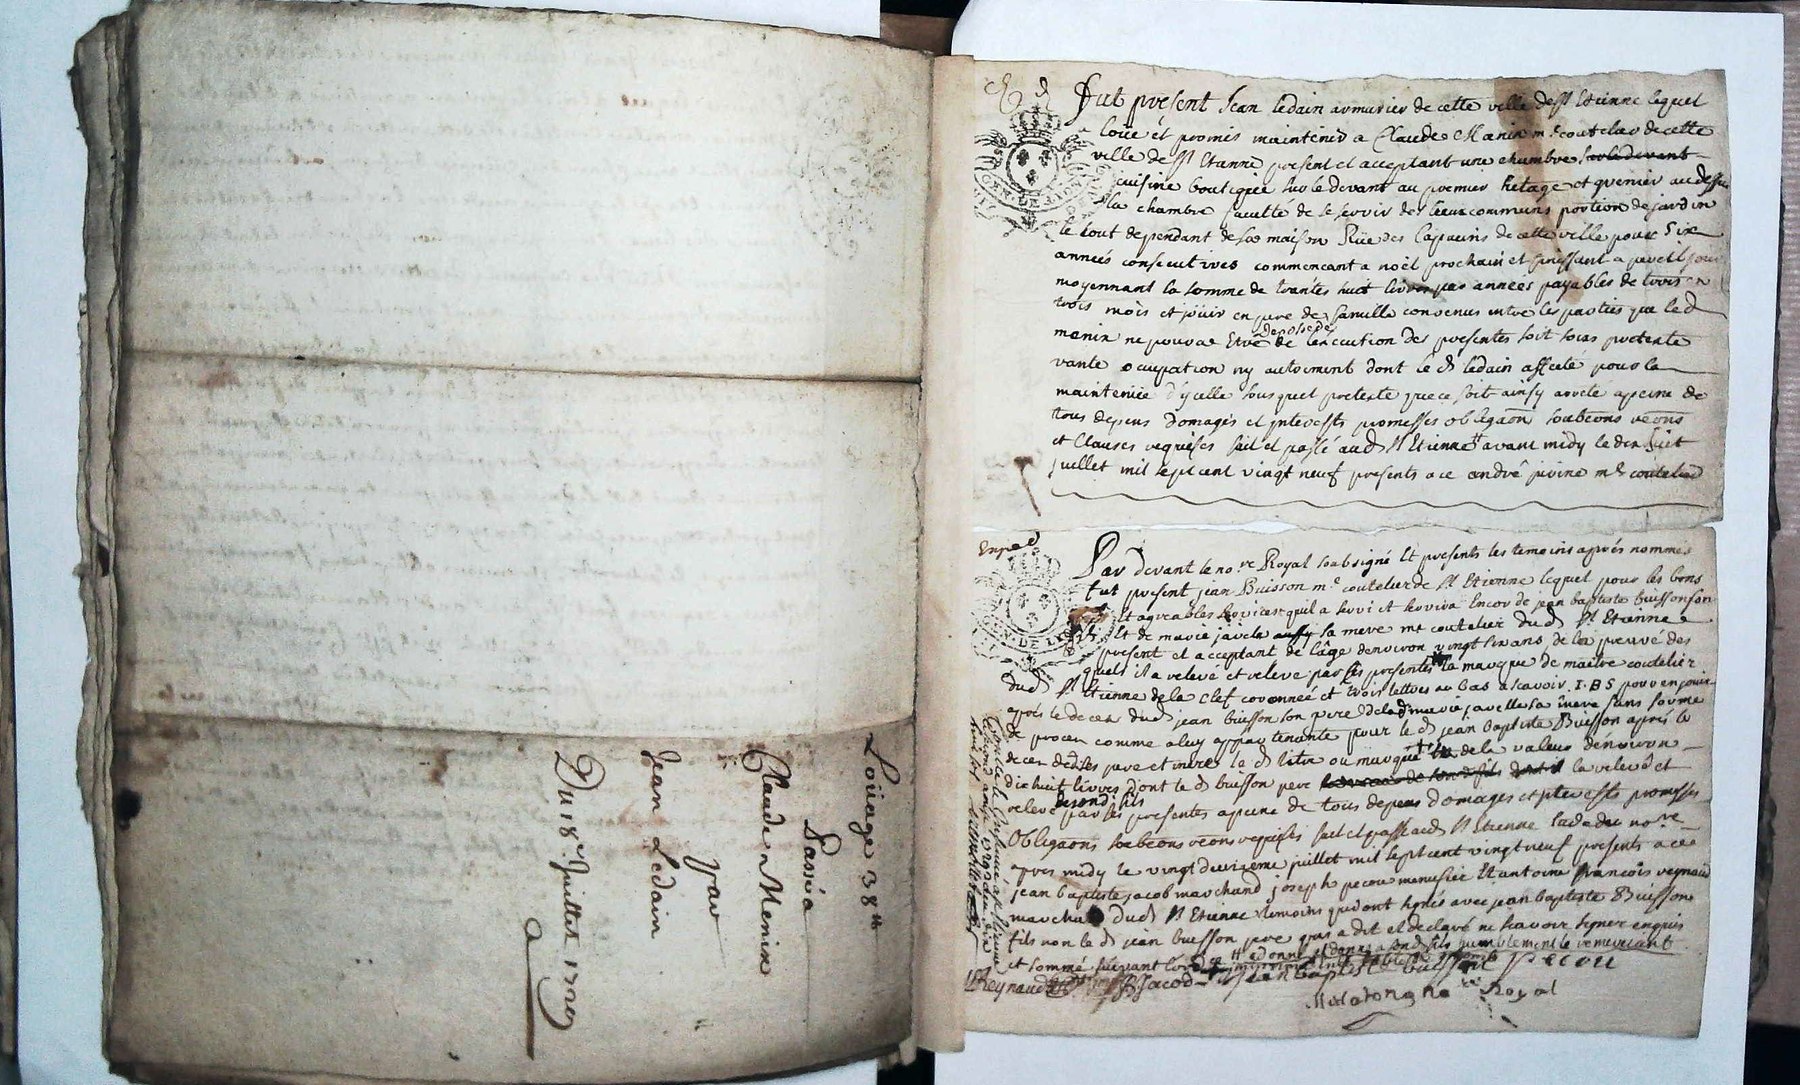 Loüage 38tt
Passé a
Claude Menin
par
Jean Ledain
Du 18e Juillet 1729
Fut present Jean ledain armurier de cette ville de st Etienne lequel
loüe et promis maintenir a Claude Manin me coutelar de cette
ville de st Etanne present et acceptant une chambre sur le devant
cuisine boutiquee sur le devant au premier hétage et grenier au dessus
la chambre faculté de se servir des lieux communs portion de jardin
le tout dependant de sa maison Rüe des Capucins de cette ville pour six
années consecutives commencant a noël prochain et finissant a pareil jour
moyennant la somme de trantes huit livres pas années payables de trois en
trois mois et jouir en pere de famille convenus entre les parties que led
menin ne pouvra Etre deposseder de lexecution des presentes soit sous pretexte
vante ocupation ny autrement dont le d ledain affecté pour la
maintenüe d'ycelle sous quel pretexte que ce soit ainsy arreté apeine de
tous depens domages et interests promesses obligaōn soubmons reōns
et Clauses requises fait et passé aud st Etienne avant midy le dix huit
juillet mil sept cent vingt neuf presents a ce andré jivine me coutelier
Exped
Par devant le nore Royal soubsigné Et presents les temoins aprés nommés
fut present jean Buisson me coutelier de st Etienne lequel pour les bons
et agreables services quil a servi et servira Encor de jean baptiste buisson son
fils Et de marie javela sa mere me coutelier dud st Etienne
present et acceptant de l'âge denviron vingt six ans, de la preuvé des
quels il a relevé et releve par ses presentes la marque de maitre coutelier
dud st Etienne de la Clef couronneé et trois lettres au bas a scavoir I·B·S pour en jouir
aprés le deces dud jean buisson son pere de lad marie javelle sa mere sans forme
de proces comme a luy appartenante pour le d jean baptiste Buisson aprés le
deces desdites pere et mere le d titre ou marque de la valeur denviron
dix huit livres dont le d buisson pere la relevé et
releve aesond fils par les presentes apeine de tous depens domages et interests promesses
Obligaons soubmons reons requises fait et passé aud st Etienne Etude du nore
apres midy le vingt deuxieme juillet mil sept cent vingt neuf presents a ce
jean baptiste jacob marchand joseph pecou menusier Et antoine francois reynaud
marchand dud st Etienne temoins qui ont signés avec jean baptiste Buisson
fils non le d jean buisson pere qui a dit et declaré ne scavoir signer enquis
et sommé suivant lord
humblement le remerciant
Reynaud Jacob Jean Baptiste buisson Pecou
nre Royal